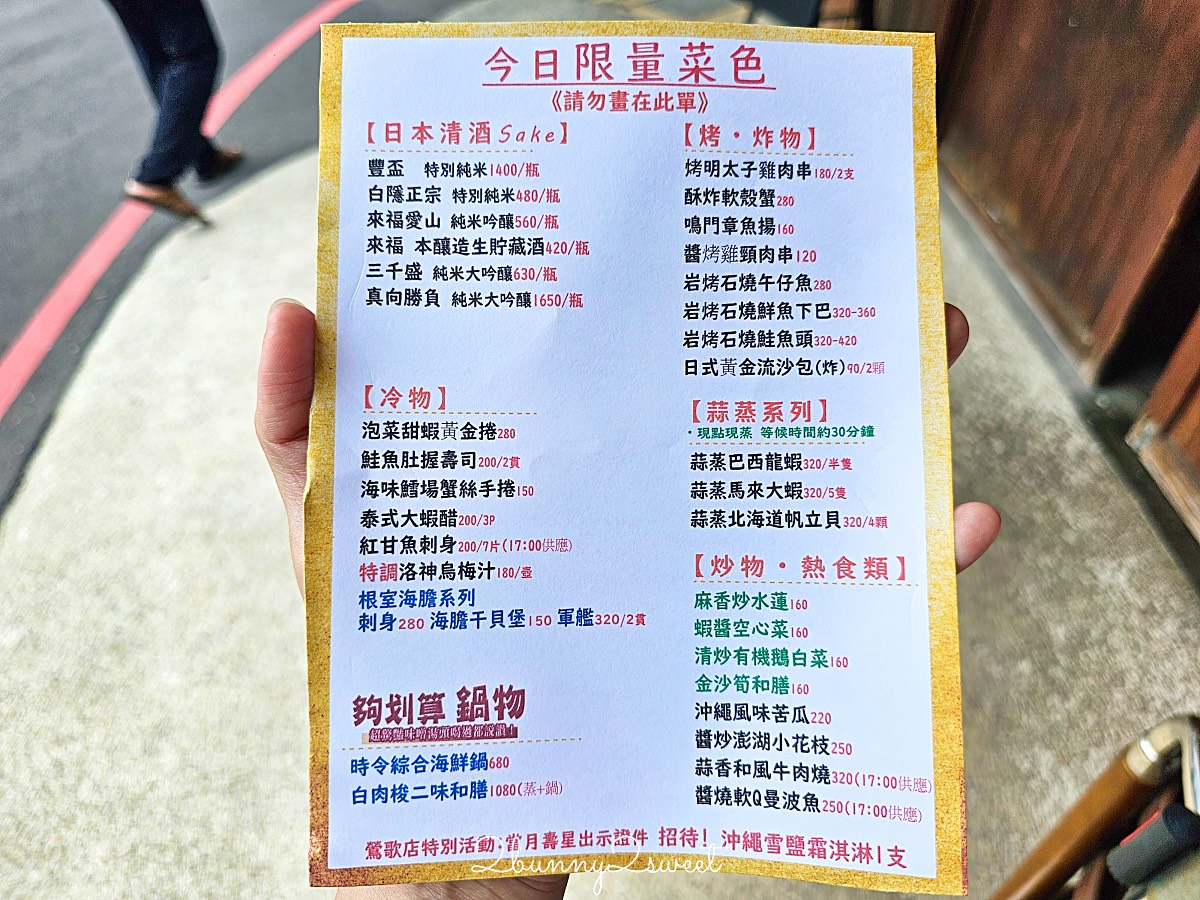 今日限量菜色
《請勿畫在此單》
【日本清酒Sake】
豐盃 特別純米1400/瓶
白隱正宗 特別純米480/瓶
來福愛山 純米吟釀560/瓶
來福 本釀造生貯藏酒420/瓶
三千盛 純米大吟釀630/瓶
真向勝負 純米大吟釀1650/瓶
【冷物】
泡菜甜蝦黃金捲280
鮭魚肚握壽司200/2貫
海味鱈場蟹絲手捲150
泰式大蝦醋200/3P
紅甘魚刺身200/7片(17:00供應)
特調洛神烏梅汁180/壺
根室海膽系列
刺身280 海膽干貝堡150 軍艦320/2貫
夠划算 鍋物
超驚豔味噌湯頭喝過都說讚!
時令綜合海鮮鍋680
白肉梭二味和膳1080(蒸+鍋)
【烤・炸物】
烤明太子雞肉串180/2支
酥炸軟殼蟹280
鳴門章魚揚160
醬烤雞頸肉串120
岩烤石燒午仔魚280
岩烤石燒鮮魚下巴320-360
岩烤石燒鮭魚頭320-420
日式黃金流沙包(炸)90/2顆
【蒜蒸系列】
・現點現蒸 等候時間約30分鐘
蒜蒸巴西龍蝦320/半隻
蒜蒸馬來大蝦320/5隻
蒜蒸北海道帆立貝320/4顆
【炒物・熱食類】
麻香炒水蓮160
蝦醬空心菜160
清炒有機鵝白菜160
金沙筍和膳160
沖繩風味苦瓜220
醬炒澎湖小花枝250
蒜香和風牛肉燒320(17:00供應)
醬燒軟Q曼波魚250(17:00供應)
鶯歌店特別活動:當月壽星出示證件 招待! 沖繩雪鹽霜淇淋1支
2bunny2sweet